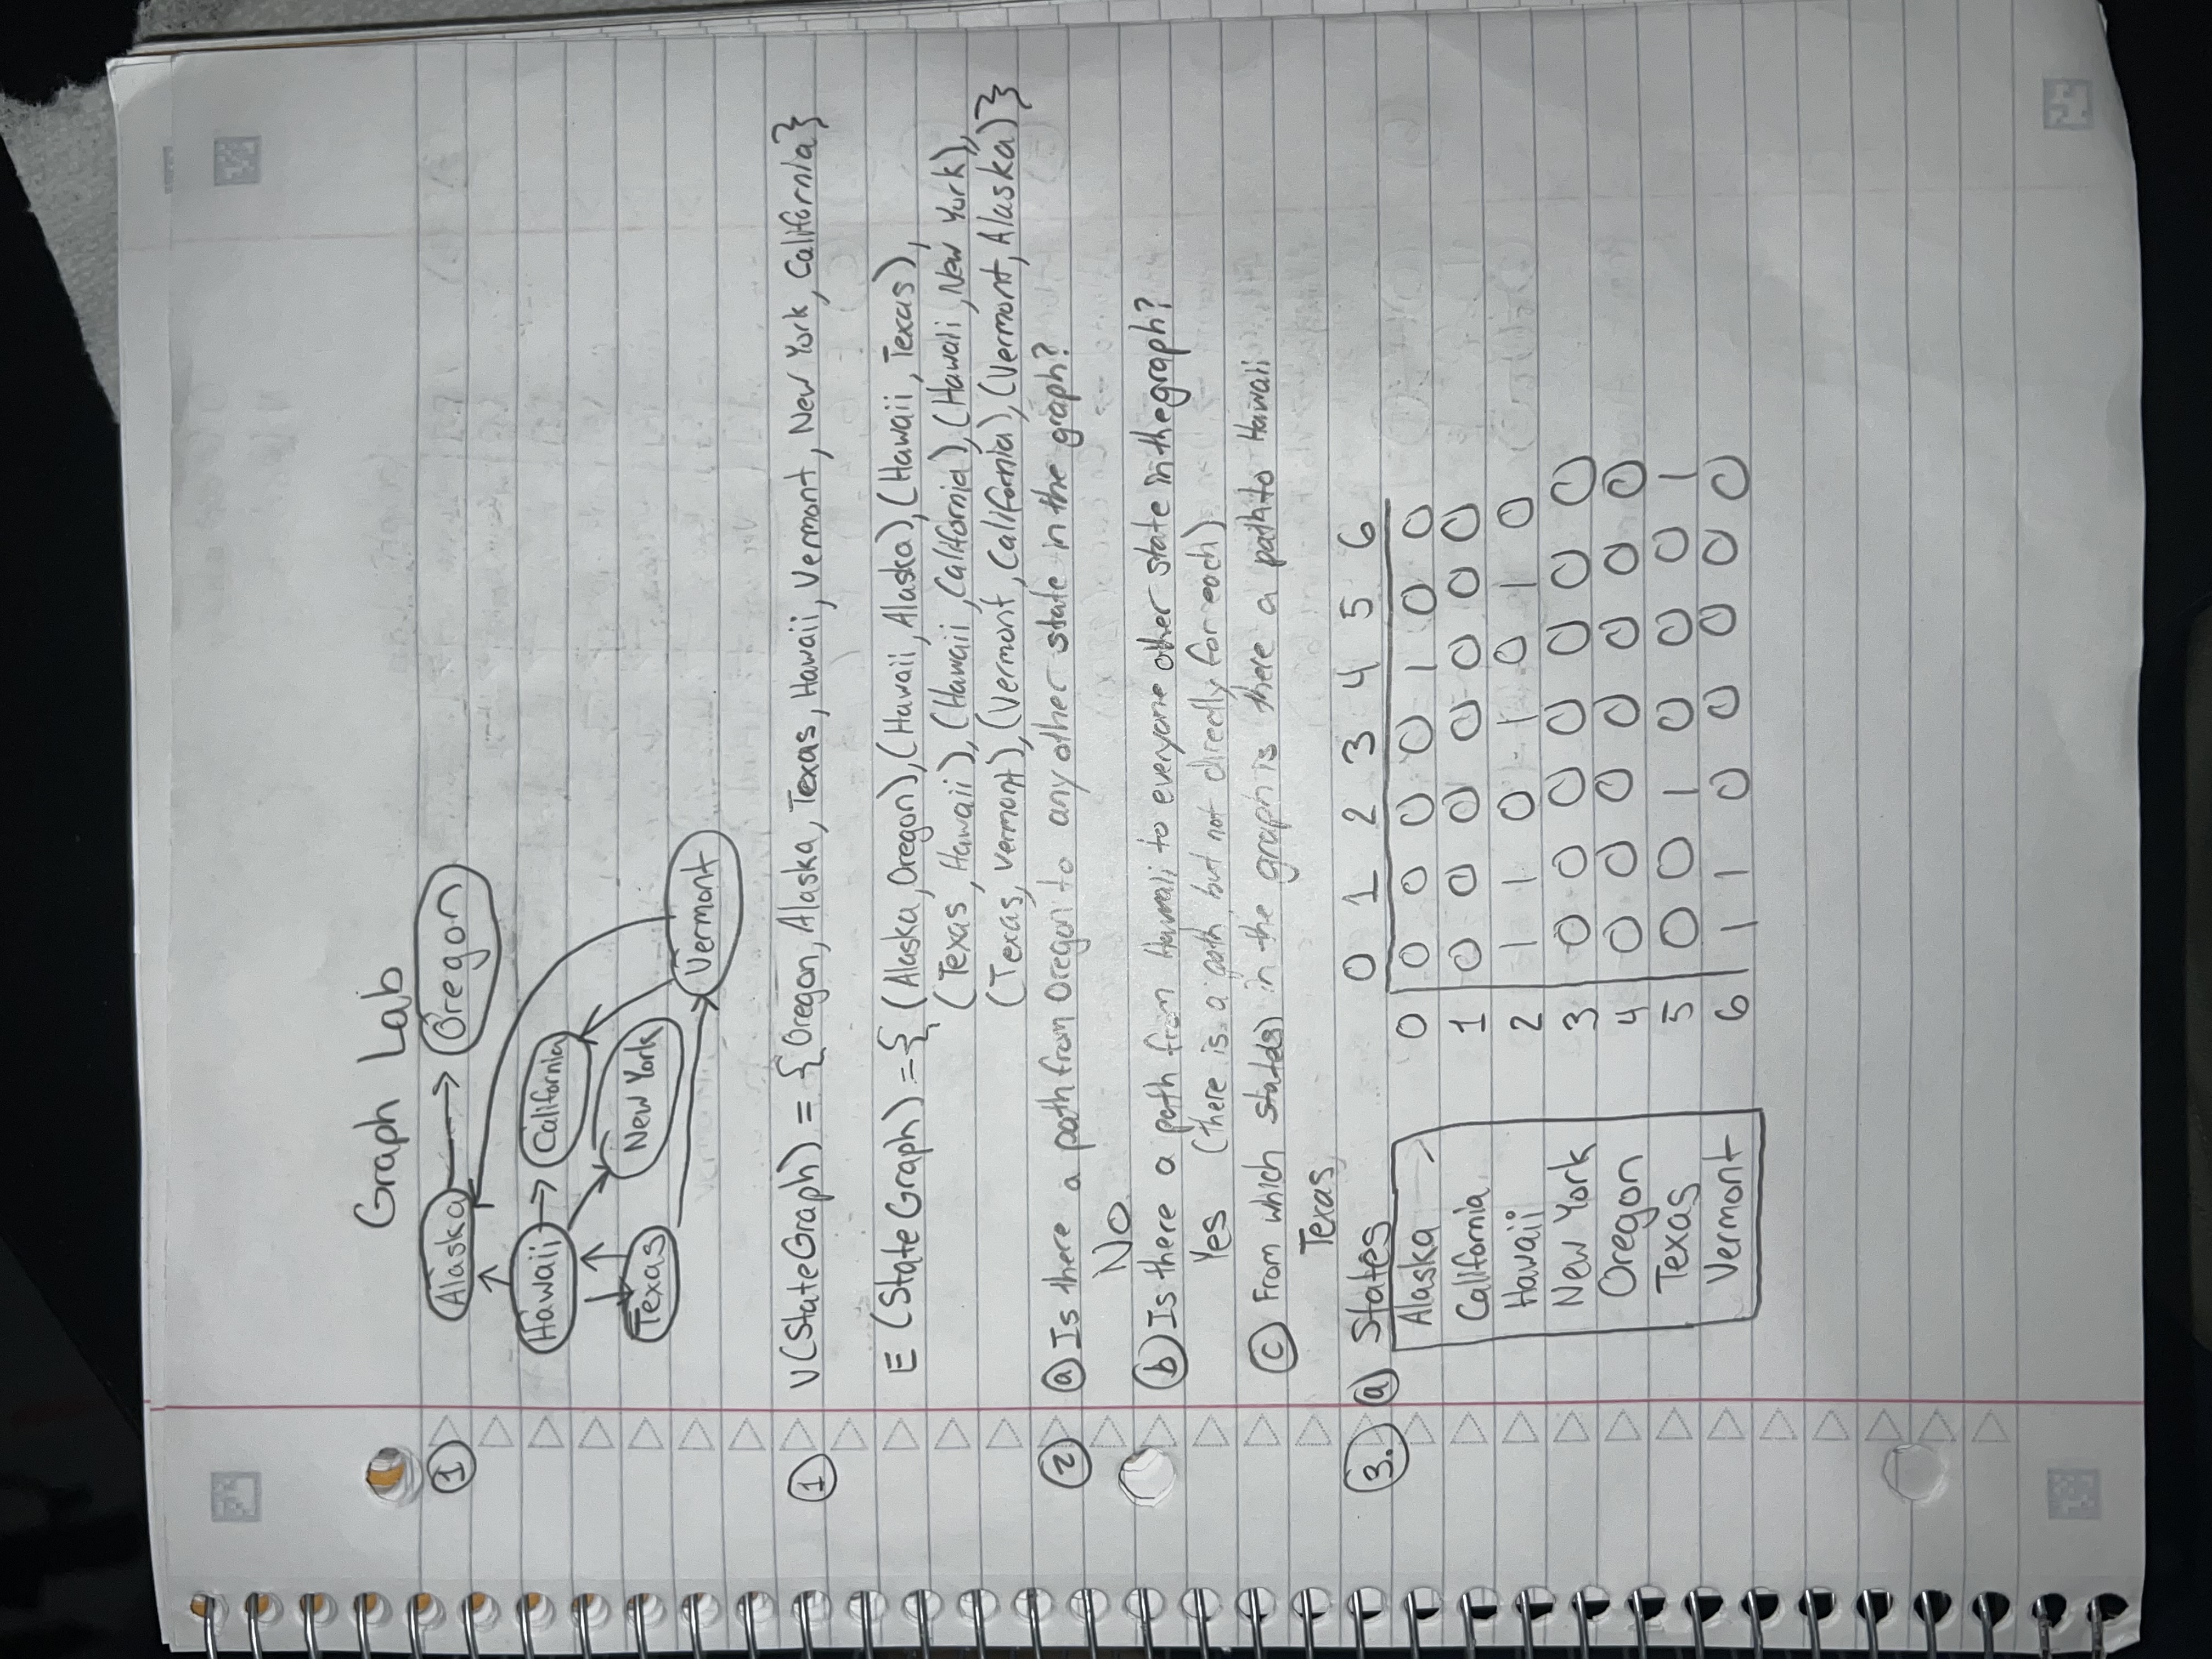 Graph Lab
1 Alaska Oregon
Hawaii California
Texas New York
Vermont
1 V(StateGraph) = {Oregon, Alaska, Texas, Hawaii, Vermont, New York, California}
E (StateGraph) = { (Alaska, Oregon), (Hawaii, Alaska), (Hawaii, Texas),
(Texas, Hawaii), (Hawaii, California), (Hawaii, New York),
(Texas, Vermont), (Vermont, California), (Vermont, Alaska)}
2 a Is there a path from Oregon to any other state in the graph?
No
b Is there a path from Hawaii to everyone other state in the graph?
Yes (there is a path, but not directly for each)
c From which state(s) in the graph is there a path to Hawaii
Texas
3. a States 0 1 2 3 4 5 6
Alaska 0 0 0 0 0 1 0 0
California 1 0 0 0 0 0 0 0
Hawaii 2 1 1 0 1 0 1 0
New York 3 0 0 0 0 0 0 0
Oregon 4 0 0 0 0 0 0 0
Texas 5 0 0 1 0 0 0 1
Vermont 6 1 1 0 0 0 0 0